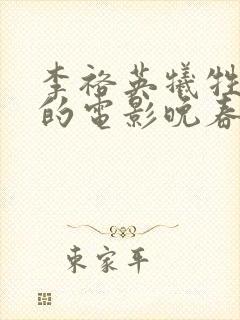 李裕英犧牲
的電影晚春
東家平